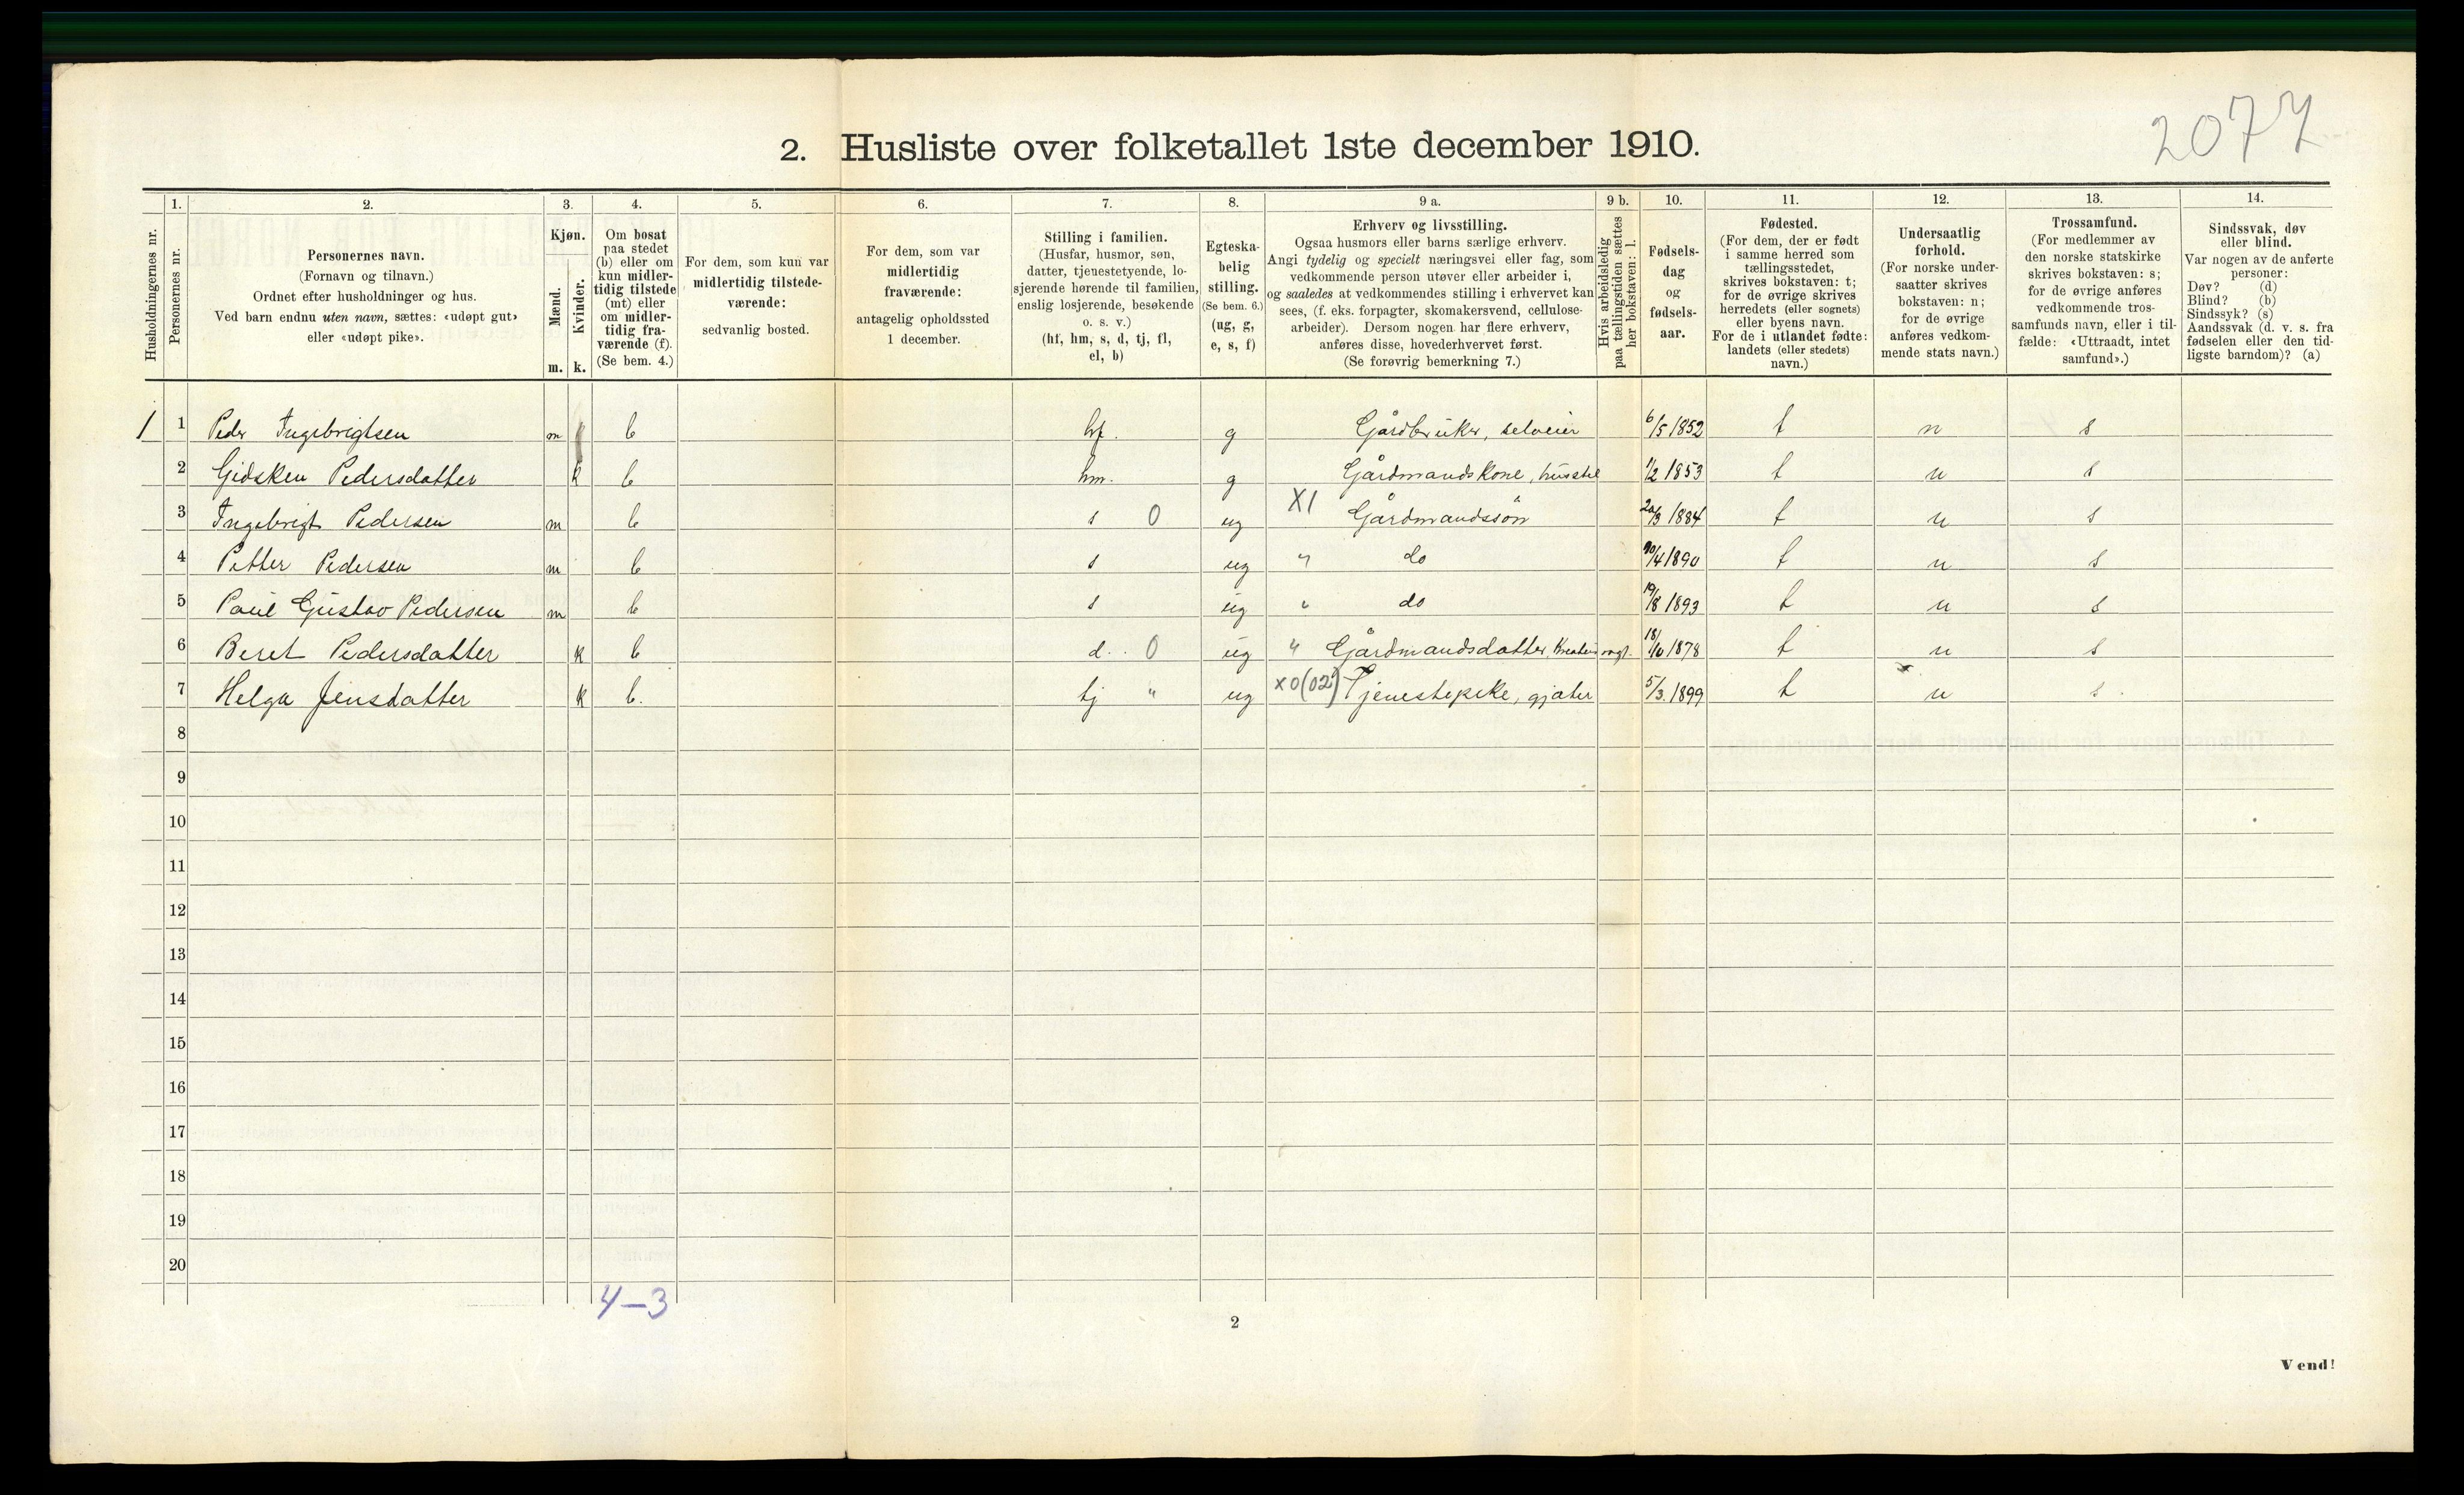 2077
2. Husliste over folketallet 1ste december 1910.
Husholdningernes nr.
1. Personernes nr.
2. Personernes navn.
(Fornavn og tilnavn.)
Ordnet efter husholdninger og hus.
Ved barn endnu uten navn, sættes: «udøpt gut»
eller «udøpt pike».
3. Kjøn.
Mænd. Kvinder.
m. k.
4. Om bosat
paa stedet
(b) eller om
kun midler-
tidig tilstede
(mt) eller
om midler-
tidig fra-
værende (f).
(Se bem. 4.)
5. For dem, som kun var
midlertidig tilstede-
værende:
sedvanlig bosted.
6. For dem, som var
midlertidig
fraværende:
antagelig opholdssted
1 december.
7. Stilling i familien.
(Husfar, husmor, søn,
datter, tjenestetyende, lo-
sjerende hørende til familien,
enslig losjerende, besøkende
o. s. v.)
(hf, hm, s, d, tj, fl,
el, b)
8. Egteska-
belig
stilling.
(Se bem. 6.)
(ug, g,
e, s, f)
9 a. Erhverv og livsstilling.
Ogsaa husmors eller barns særlige erhverv.
Angi tydelig og specielt næringsvei eller fag, som
vedkommende person utøver eller arbeider i,
og saaledes at vedkommendes stilling i erhvervet kan
sees, (f. eks. forpagter, skomakersvend, cellulose-
arbeider). Dersom nogen har flere erhverv,
anføres disse, hovederhvervet først.
(Se forøvrig bemerkning 7.)
9 b. Hvis arbeidsledig
paa tællingstiden sættes
her bokstaven: l.
10. Fødsels-
dag
og
fødsels-
aar.
11. Fødested.
(For dem, der er født
i samme herred som
tællingsstedet,
skrives bokstaven: t;
for de øvrige skrives
herredets (eller sognets)
eller byens navn.
For de i utlandet fødte:
landets (eller stedets)
navn.)
12. Undersaatlig
forhold.
(For norske under-
saatter skrives
bokstaven: n;
for de øvrige
anføres vedkom-
mende stats navn.)
13. Trossamfund.
(For medlemmer av
den norske statskirke
skrives bokstaven: s;
for de øvrige anføres
vedkommende tros-
samfunds navn, eller i til-
fælde: «Uttraadt, intet
samfund».)
14. Sindssvak, døv
eller blind.
Var nogen av de anførte
personer:
Døv? (d)
Blind? (b)
Sindssyk? (s)
Aandssvak (d. v. s. fra
fødselen eller den tid-
ligste barndom)? (a)
1 1 Peder Ingebrigtsen m b hf. g Gårdbruker, selveier 6/5 1852 t n s
2 Gidsken Pedersdatter k b hm. g Gårdmandskone, husstel 1/2 1853 t n s
3 Ingebrigt Pedersen m b s 0 ug X1 Gårdmandssøn 20/3 1884 t n s
4 Petter Pedersen m b s ug " do /4 1890 t n s
5 Paul Gustav Pedersen m b s ug " do 19/8 1893 t n s
6 Beret Pedersdatter k b d. 0 ug " Gårdmandsdatter, 1878 t n s
7 Helga Jensdatter k b. tj " ug X0(02) Tjenestepike, gjæter 5/3. 1899 t n s.
8
9
10
11
12
13
14
15
16
17
18
19
20
4-3
2
Vend!